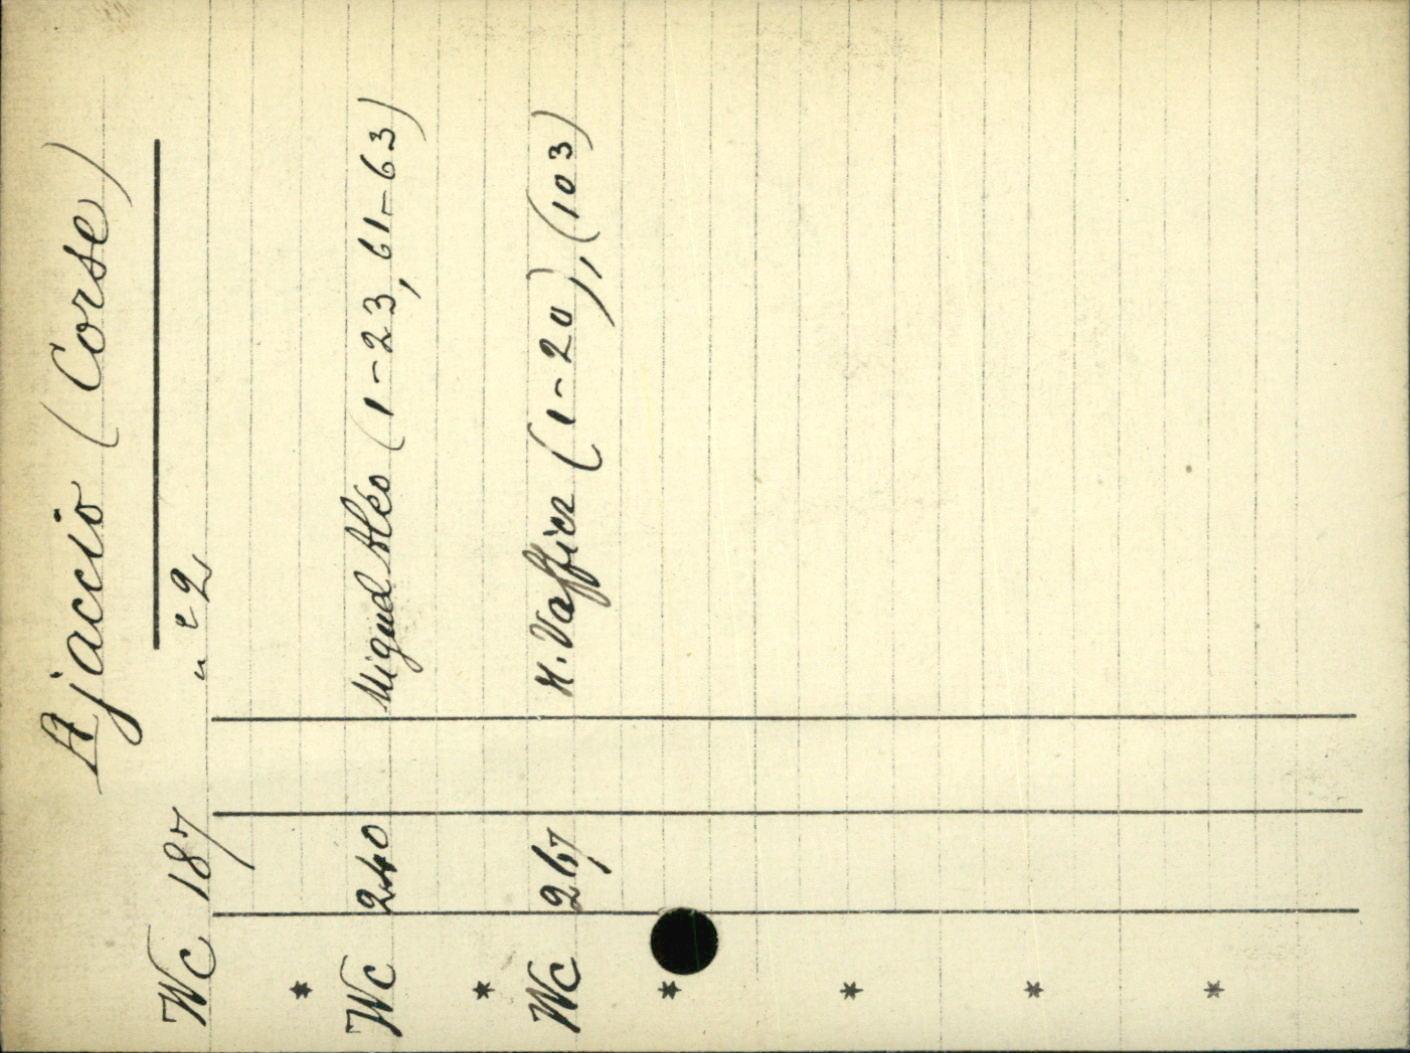 Ajaccio (Corse)
Wc 187 n° 2
*
Wc 240 Miguel Aléo (1-23, 61-63)
*
Wc 267 H. Vaffier (1-20), (103)
*
*
*
*